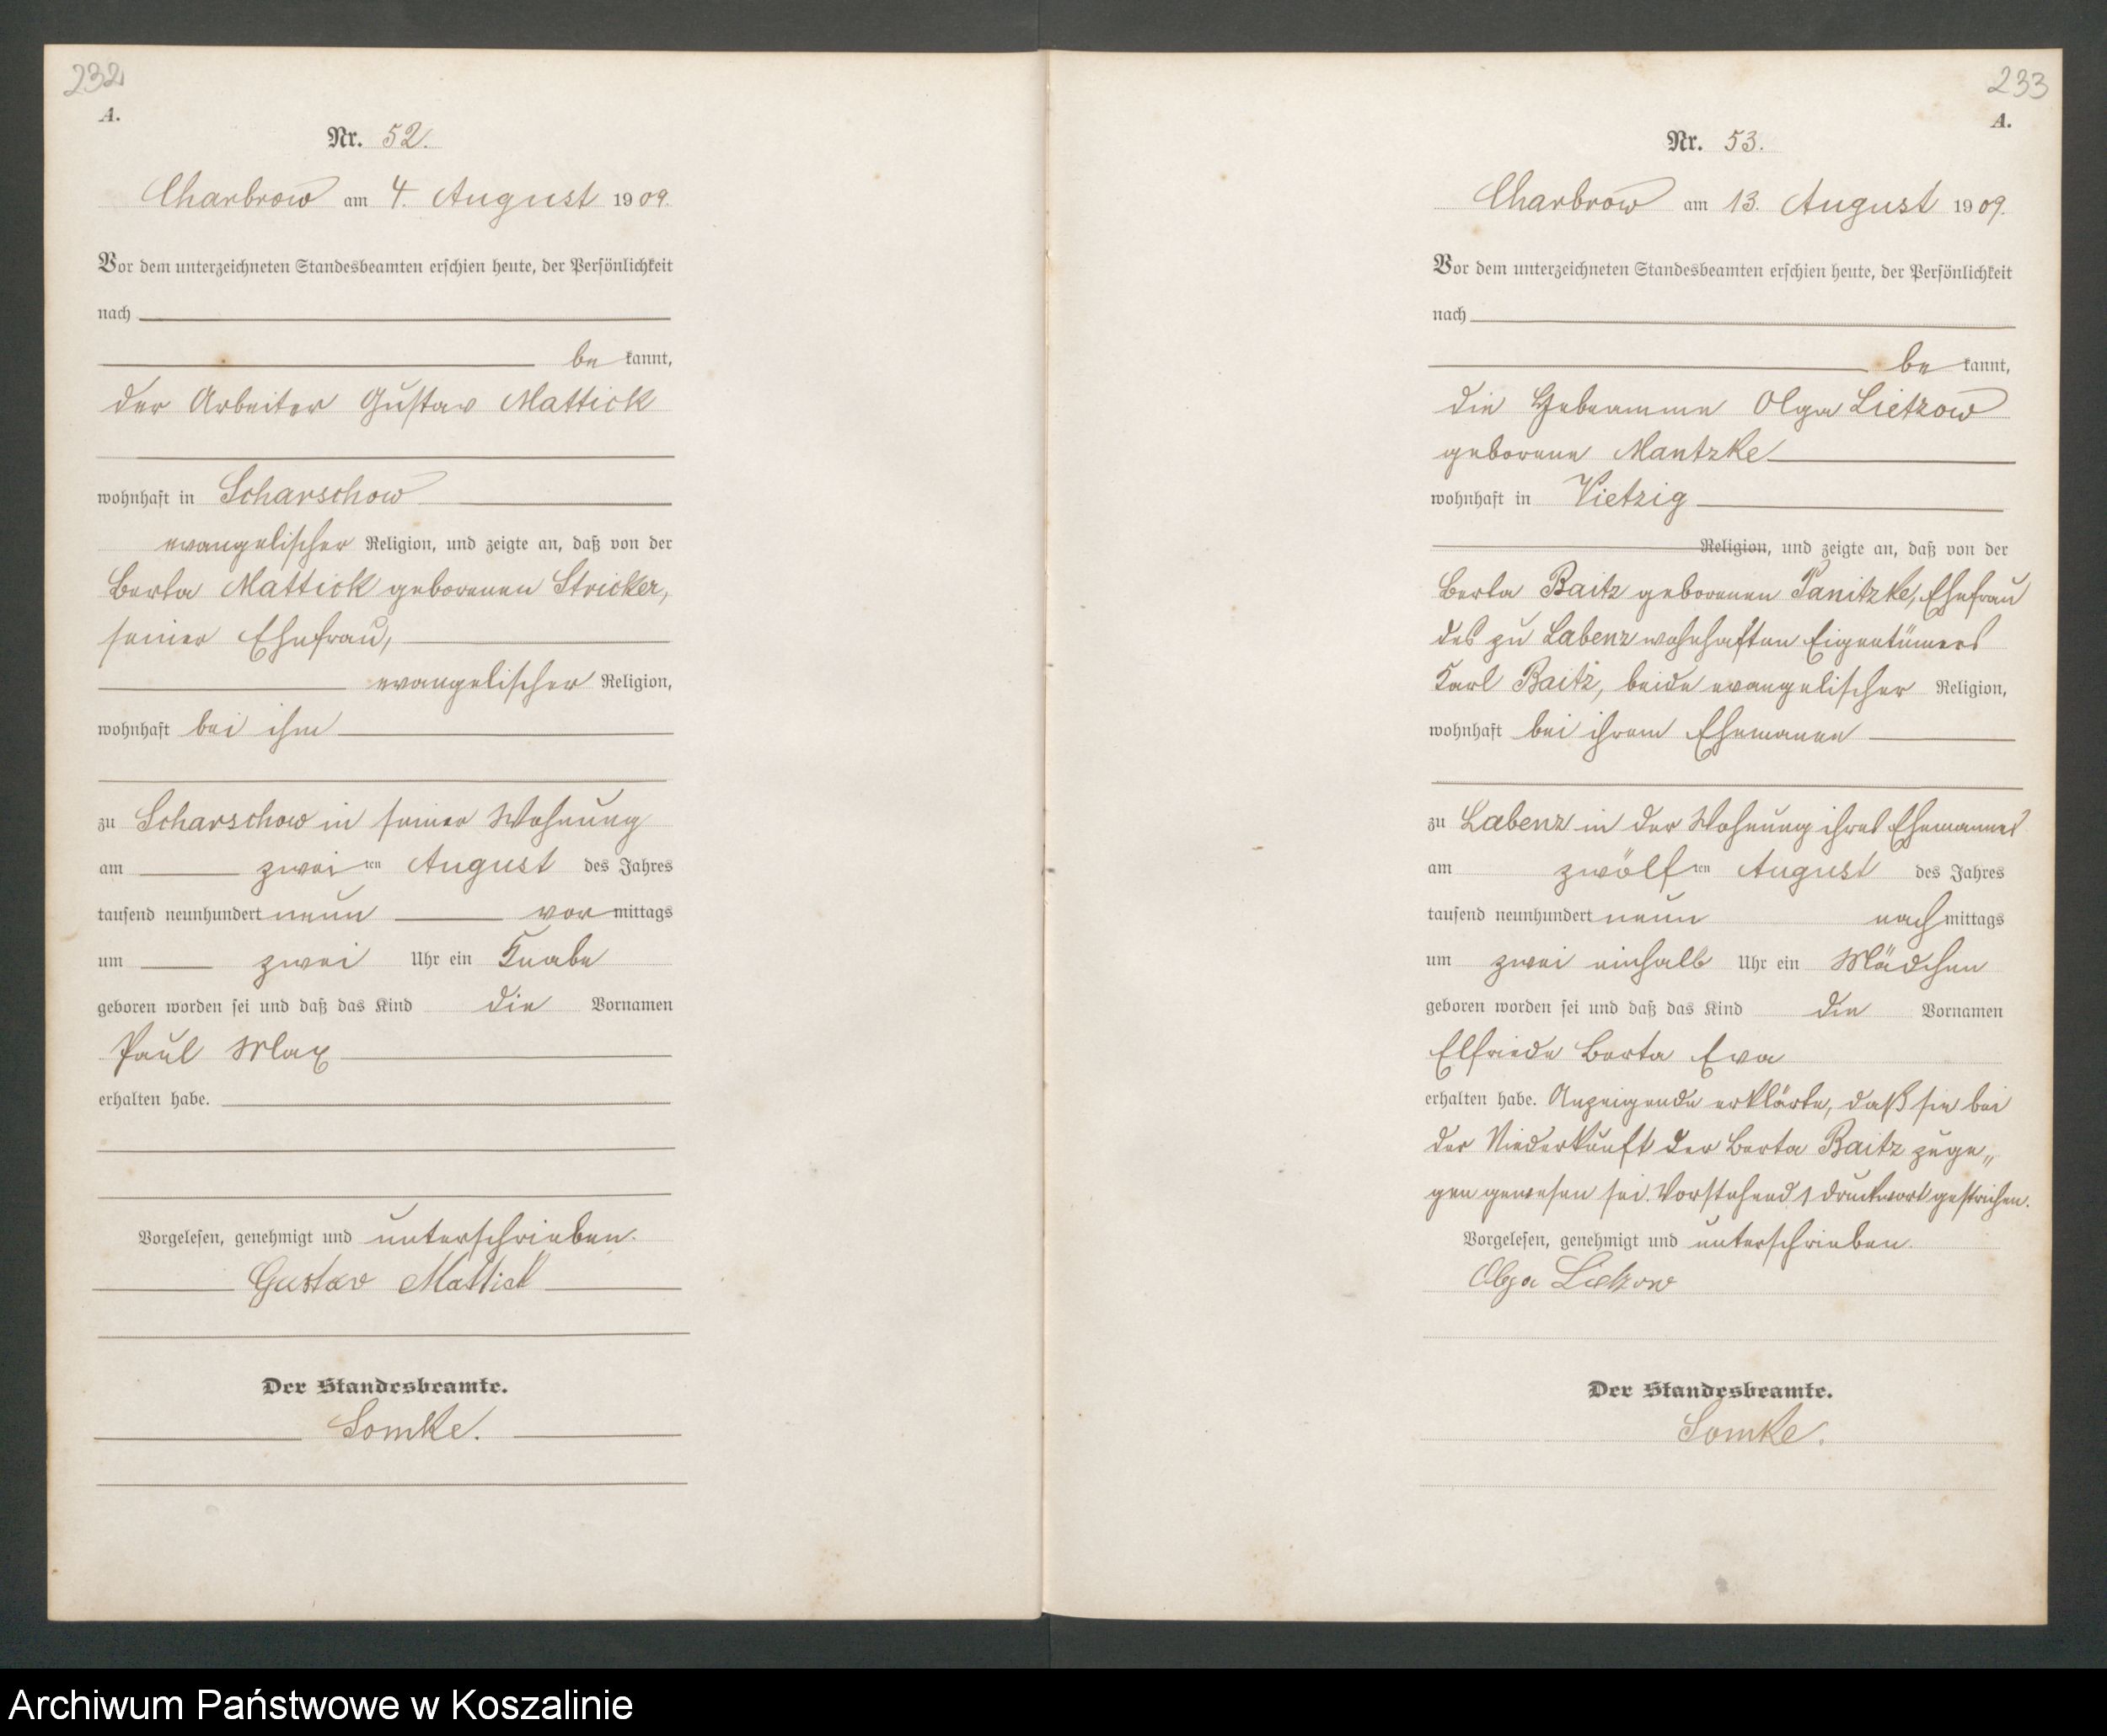 232
A.
Nr. 52.
Charbrow am 4. August 1909.
Vor dem unterzeichneten Standesbeamten erschien heute, der Persönlichkeit
nach
be kannt,
der Arbeiter Gustav Mattick
wohnhaft in Scharschow
evangelischer Religion, und zeigte an, daß von der
Berta Mattick geborenen Stricker,
seiner Ehefrau,
evangelischer Religion,
wohnhaft bei ihm
zu Scharschow in seiner Wohnung
am zwei ten August des Jahres
tausend neunhundert neun vor mittags
um zwei Uhr ein Knabe
geboren worden sei und daß das Kind die Vornamen
Paul Max
erhalten habe.
Vorgelesen, genehmigt und unterschrieben.
Gustav Mattick
Der Standesbeamte.
Somke.
233
A.
Nr. 53.
Charbrow am 13. August 1909.
Vor dem unterzeichneten Standesbeamten erschien heute, der Persönlichkeit
nach
be kannt,
die Hebeamme Olga Lietzow
geborene Mantzke
wohnhaft in Vietzig
Religion, und zeigte an, daß von der
Berta Baitz geborenen Panitzke, Ehefrau
des zu Labenz wohnhaften Eigentümers
Karl Baitz, beide evangelischer Religion,
wohnhaft bei ihrem Ehemanne
zu Labenz in der Wohnung ihres Ehemannes
am zwölf ten August des Jahres
tausend neunhundert neun nach mittags
um zwei einhalb Uhr ein Mädchen
geboren worden sei und daß das Kind die Vornamen
Elfriede Berta Eva
erhalten habe. Anzeigende erklärte, daß sie bei
der Niederkunft der Berta Baitz zuge„
gen gewesen sei. Vorstehend 1 Druckwort gestrichen.
Vorgelesen, genehmigt und unterschrieben.
Olga Lietzow
Der Standesbeamte.
Somke.
Archiwum Państwowe w Koszalinie